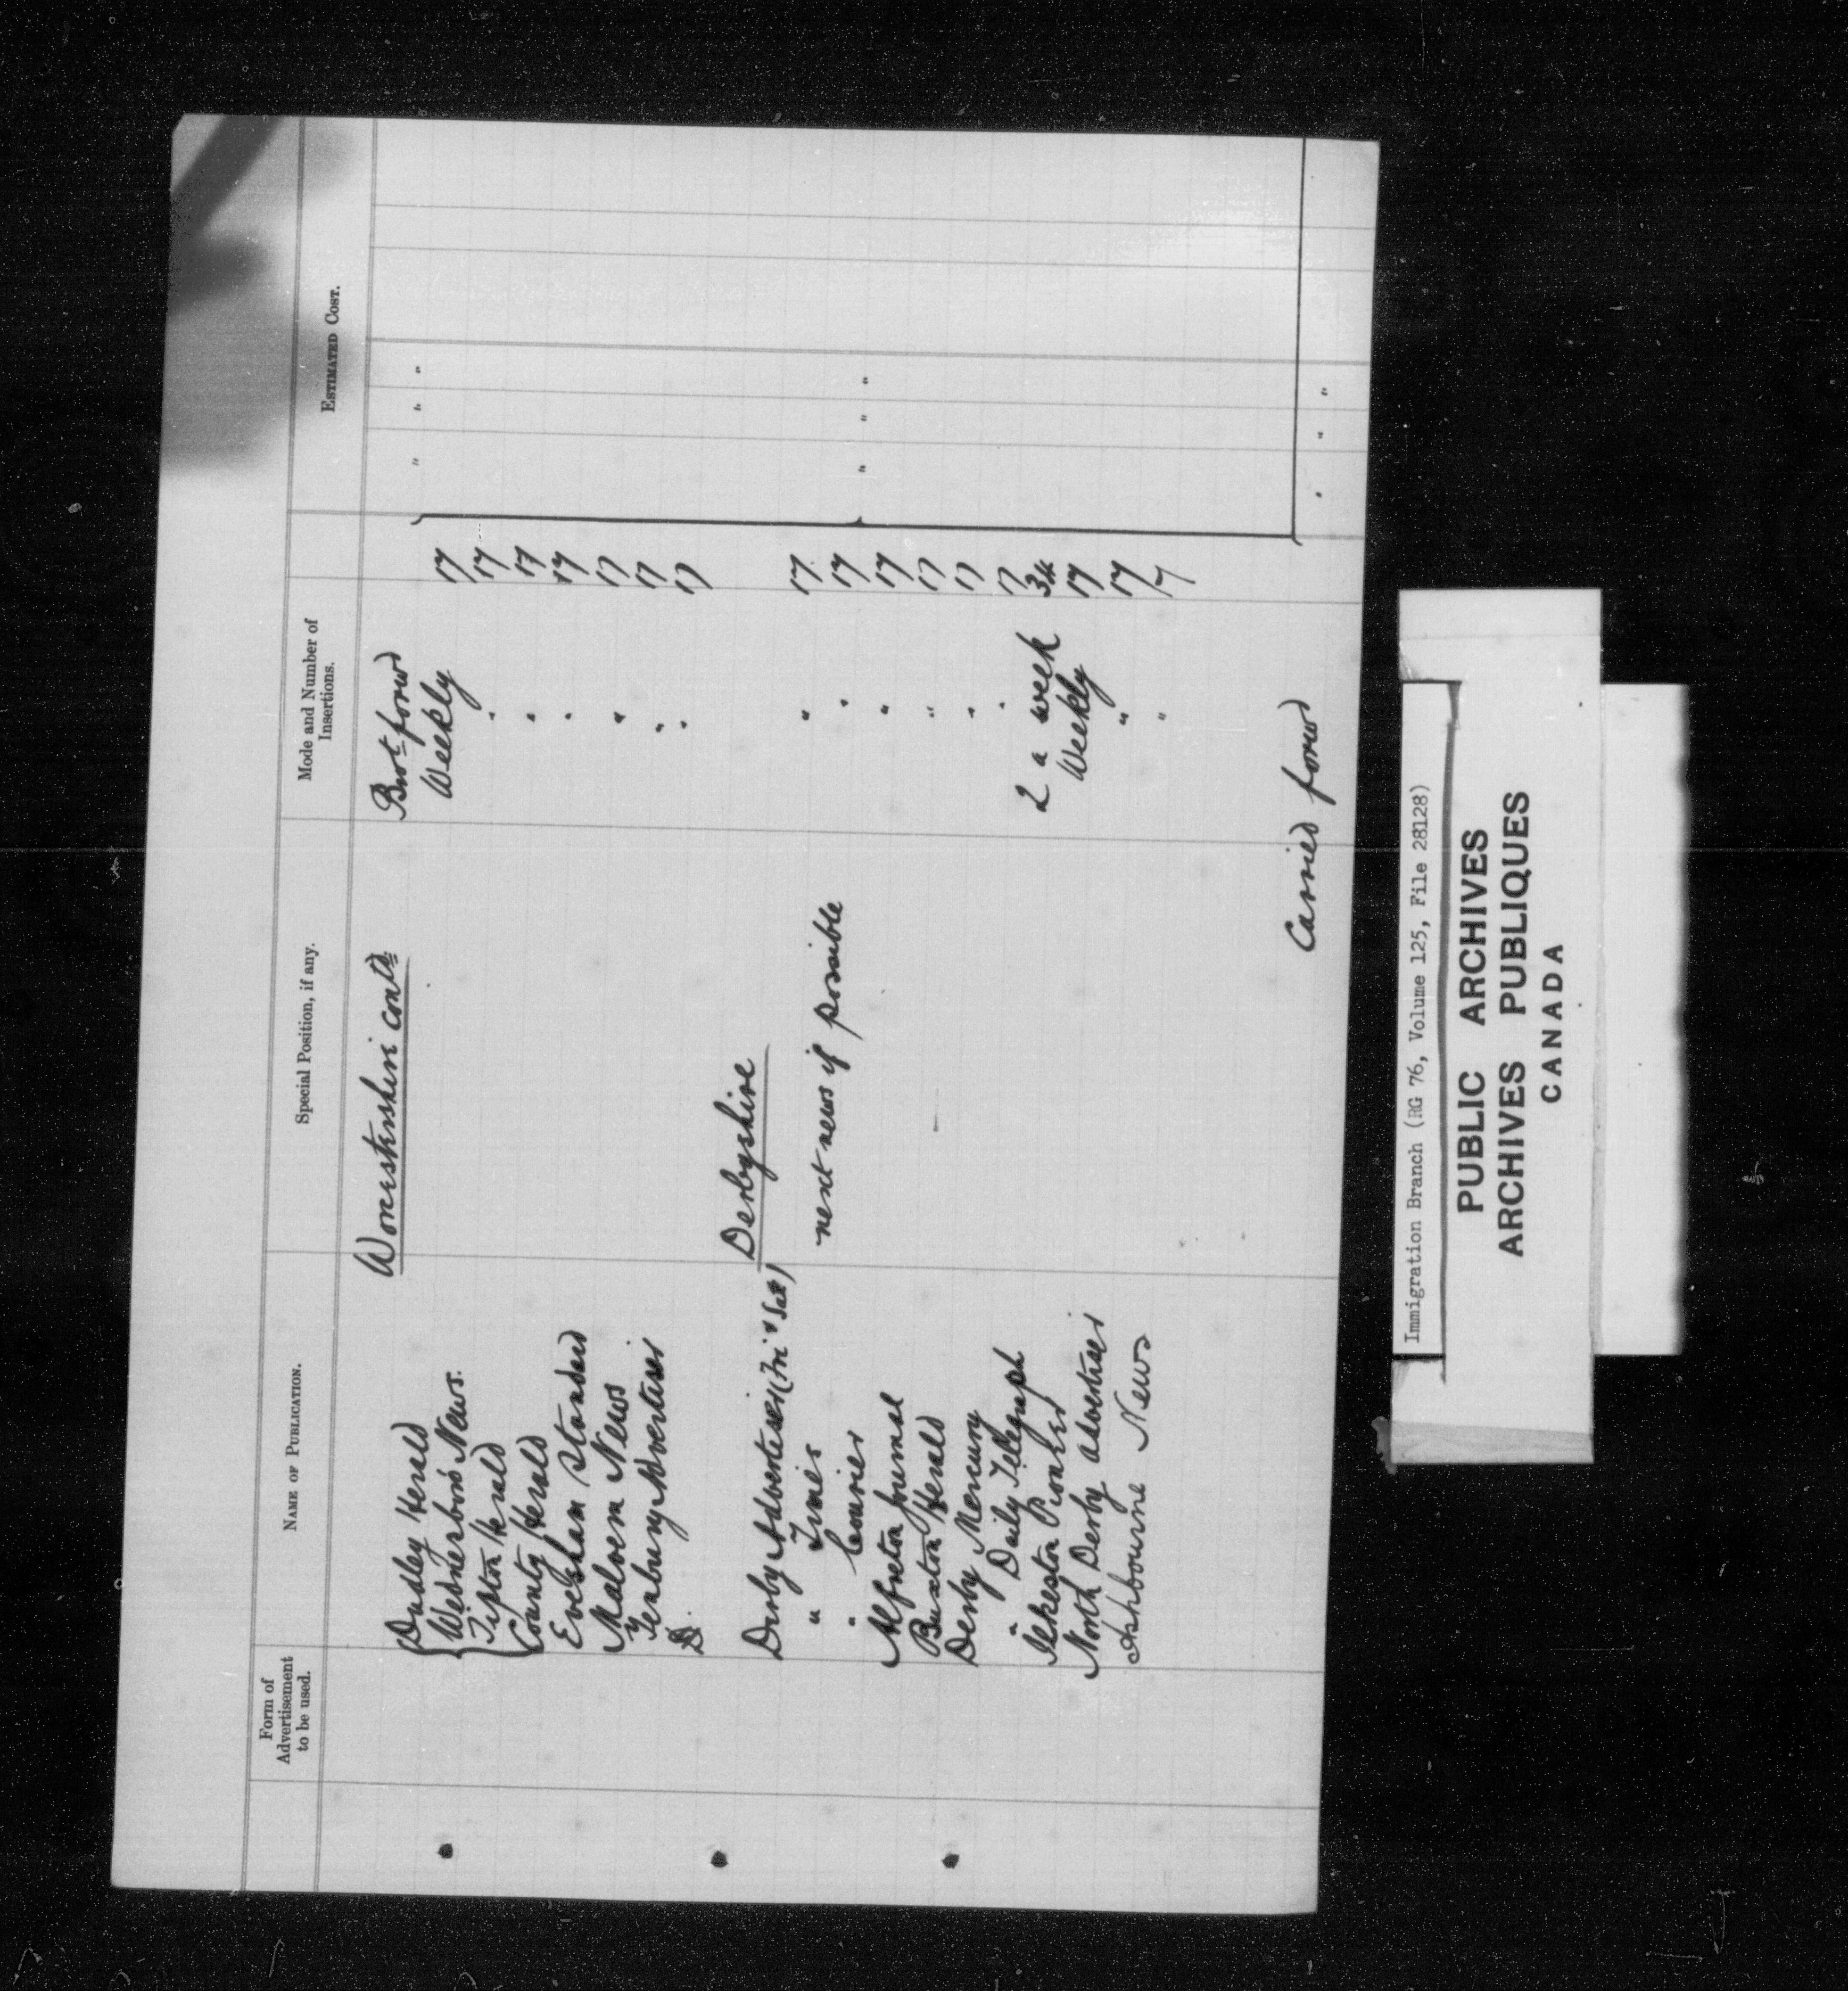 Form of Advertisement to be used.
NAME OF PUBLICATION.
Special Position, if any.
Mode and Number of Insertions.
ESTIMATED COST.
Worcestershire contd
Brot forwd
Dudley Herald Weekly 17 " " "
Wednesboro' News. " 17
Tipton Herald " 17
County Herald " 17
Evesham Standard " 17
Malvern News " 17
Tenbury Advertiser " 17
D.
Derbyshire
Derby Advertiser (Fri & Sat) " 17
" Times next news if possible " 17
" Courier " 17 " " "
Alfreton Journal " 17
Buxton Herald " 17
Derby Mercury " 17
" Daily Telegraph 2 a week 34
Ilkeston Pioneer Weekly 17
North Derby Advertiser " 17
Ashbourne News " 17
Carried forwd " " "
Immigration Branch (RG 76, Volume 125, File 28128)
PUBLIC ARCHIVES
ARCHIVES PUBLIQUES
CANADA